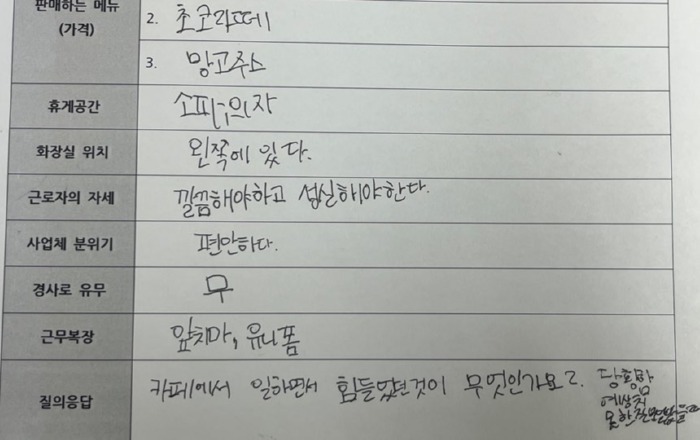 판매하는 메뉴
(가격)
2. 초코라떼
3. 망고주스
휴게공간 소파, 의자
화장실 위치 왼쪽에 있다.
근로자의 자세 깔끔해야하고 성실해야한다.
사업체 분위기 편안하다.
경사로 유무 무
근무복장 앞치마, 유니폼
질의응답 카페에서 일하면서 힘들었던것이 무엇인가요?
당황함
예상치
못한